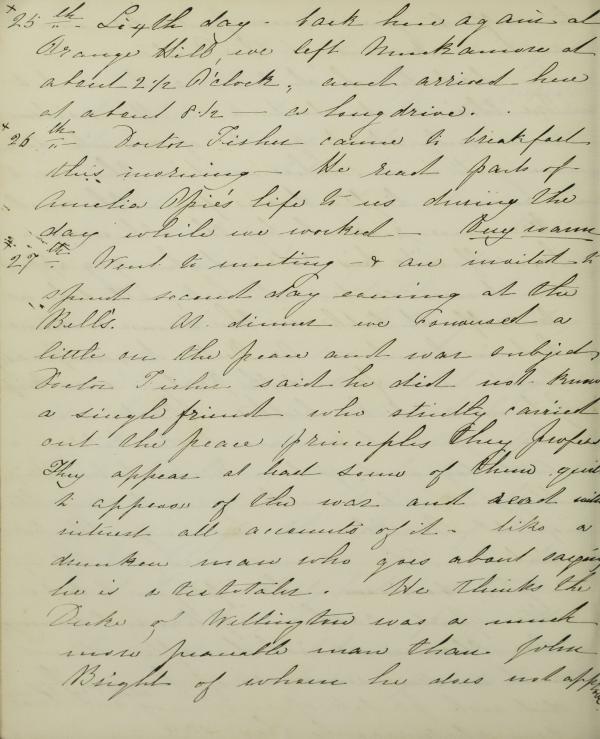 25th. Sixth day - back here again at
Orange Hill, we left Muckamore at
about 2 1/2 O'clock, and arrived here
at about 8 1/2 — a long drive.
26th Doctor Fisher came to breakfast
this morning — He read parts of
Amelia Opie's life to us during the
day while we worked — Very warm
27th. Went to meeting - & are invited to
spend second day evening at the
Bell's. At dinner we conversed a
little on the peace and war subject,
Doctor Fisher said he did not know
a single friend who strictly carried
out the peace principles they profess
They appear at least some of them quite
to approve of the war and read with
interest all accounts of it - like a
drunken man who goes about saying
he is a teetotaler. He thinks the
Duke of Wellington was a much
more peaceable man than John
Bright of whom he does not approve.